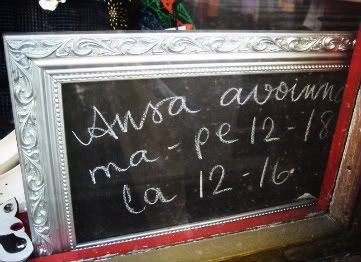 Ansa avoinna
ma - pe 12 - 18
la 12 - 16